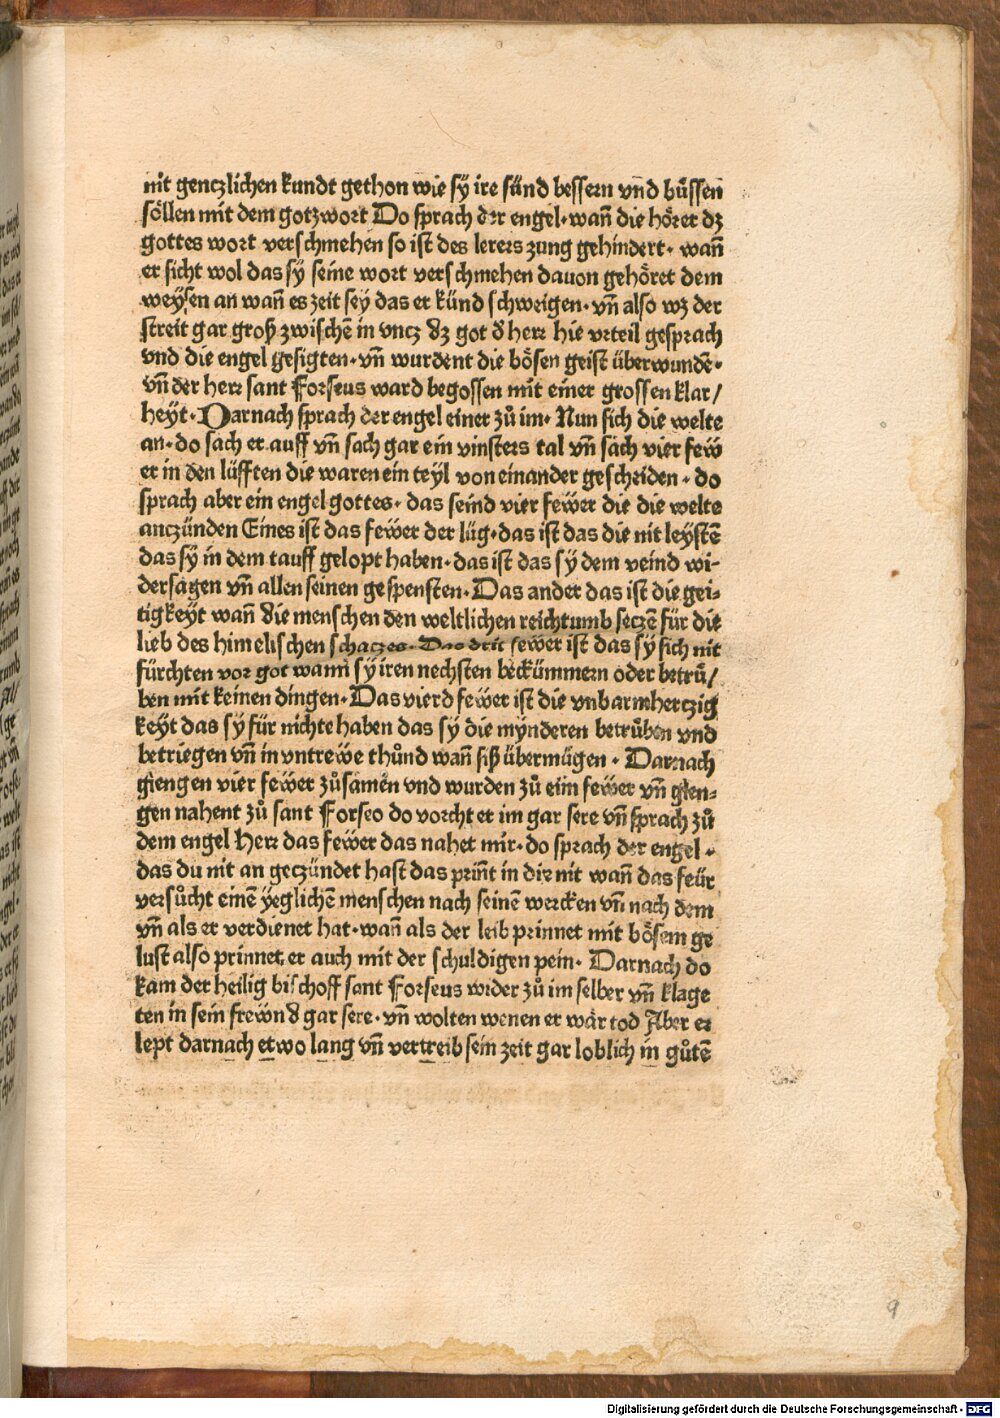 nit genczlichen kundt gethon wie sÿ ire sünd bessern vnd bůssen
söllen mit dem gotzwort Do sprach der engel· wañ die hörer dz
gottes wort verschmehen so ist des lerers zung gehindert· wañ
er sicht wol das sÿ seine wort verschmehen dauon gehöret dem
weysen an wañ es zeit seÿ das er künd schweigen· vñ also wz der
streit gar groß zwischẽ in vncz dz got d̕ herr hie vrteil gesprach
vnd die engel gesigten· vñ wurdent die bösen geist überwundẽ·
vñ der herr sant Forseus ward begossen mit einer grossen klar/
heyt· Darnach sprach der engel einer zů im· Nun sich die welte
an· do sach er auff vñ sach gar ein vinsters tal vñ sach vier feẅ
er in den lüfften die waren ein teÿl von einander gescheiden· do
sprach aber ein engel gottes· das seind vier feẅer die die welte
anczünden Eines ist das feẅer der lüg· das ist das die nit leÿstẽ
das sÿ in dem tauff gelopt haben· das ist das sÿ dem veind wi-
dersagen vñ allen seinen gespensten· Das ander das ist die gei-
tigkeÿt wañ die menschen den weltlichen reichtumb seczẽ für die
lieb des himelischen schaczes· Das drit feẅer ist das sÿ sich nit
fürchten vor got wann sÿ iren nechsten beckümmern oder betrů/
ben mit keinen dingen· Das vierd feẅer ist die vnbarmherczig
keÿt das sÿ für nichte haben das sÿ die mÿnderen betrůben vnd
betriegen vñ in vntreẅe thůnd wañ siß übermügen· Darnach
giengen vier feẅer zůsamẽn vnd wurden zů eim feẅer vñ gien-
gen nahent zů sant Forseo do vorcht er im gar sere vñ sprach zů
dem engel Herr das feẅer das nahet mir· do sprach der engel·
das du nit an geczündet hast das priñt in dir nit wañ das feür
versůcht einẽ yeglichẽ menschen nach seinẽ wercken vñ nach dem
vñ als er verdienet hat· wañ als der leib prinnet mit bösem ge
lust also prinnet er auch mit der schuldigen pein· Darnach do
kam der heilig bischoff sant Forseus wider zů im selber vñ klage
ten in sein freẅnd gar sere· vñ wolten wenen er wär tod Aber er
lept darnach etwo lang vñ vertreib sein zeit gar loblich in gůtẽ
9
Digitalisierung gefördert durch die Deutsche Forschungsgemeinschaft - DFG